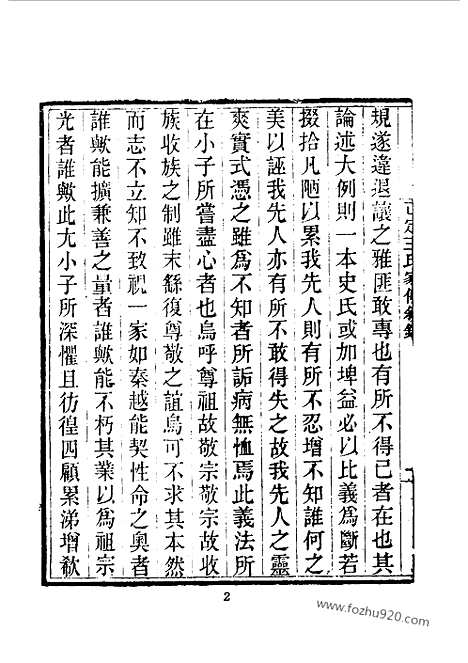 規遂違退議之雅匪敢專也有所不得已者在也其
論述大例則一本史氏或加埤益必以比義為斷若
掇拾凡陋以累我先人則有所不忍增不知誰何之
美以誣我先人亦有所不敢得失之故我先人之靈
爽實式憑之雖為不知者所詬病無恤焉此義法所
在小子所嘗盡心者也烏呼尊祖故敬宗敬宗故收
族收族之制雖末繇復尊敬之誼烏可不求其本然
而志不立知不致視一家如秦越能契性命之奧者
誰歟能擴兼善之量者誰歟能不朽其業以為祖宗
光者誰歟此尢小子所深懼且彷徨四顧累涕增欷
2
www.fozhu920.com